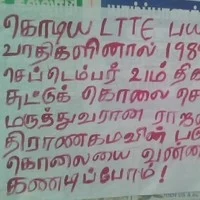 கொடிய LTTE பய
வாதிகளினால் 1989
செப்டெம்பர் 21ம் திக
சுட்டுக் கொலை செ
மருத்துவரான ராஜ
திராணகமவின் படு
கொலையை வன்மை
கண்டிப்போம்!